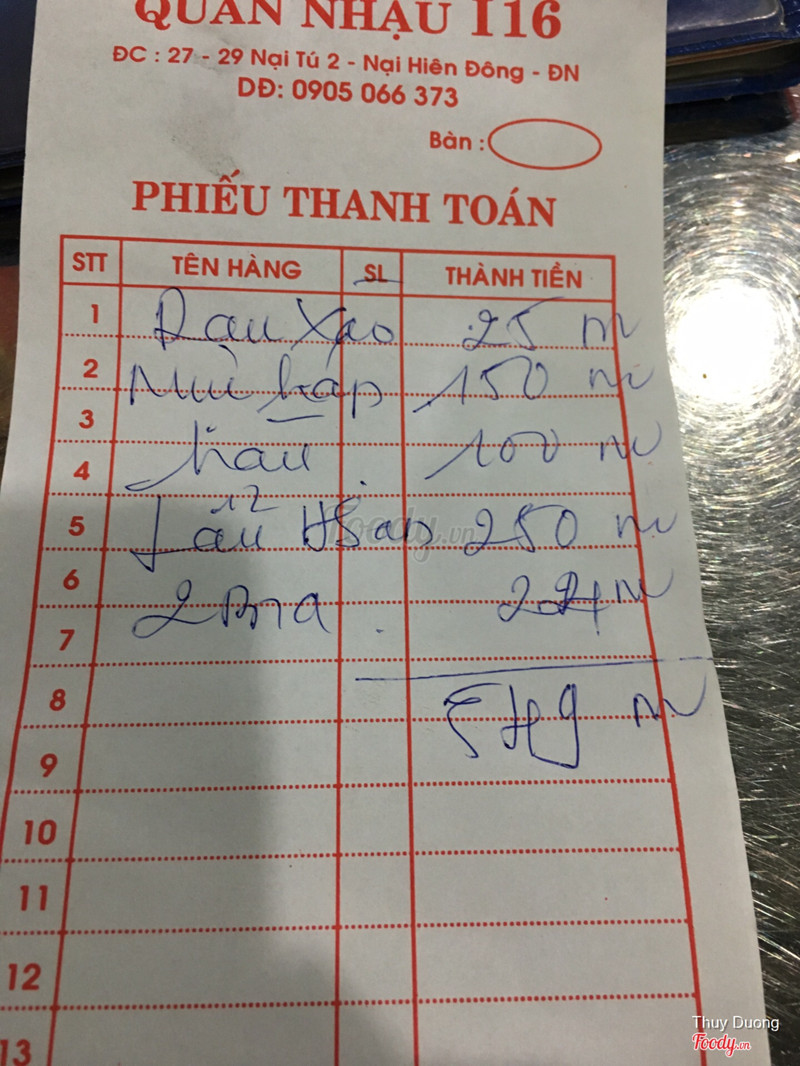 QUÁN NHẬU I16
ĐC : 27 - 29 Nại Tú 2 - Nại Hiên Đông - ĐN
DĐ: 0905 066 373
Bàn :
PHIẾU THANH TOÁN
STT TÊN HÀNG SL THÀNH TIỀN
1 Rau xào 25 m
2 Mùi hấp 150 m
3 hàu 100 m
4
5 Lẩu 250 m
6 2 Bia 24 m
7
549 m
8
9
10
11
12
13
Foody.vn
Thuy Duong
Foody.vn